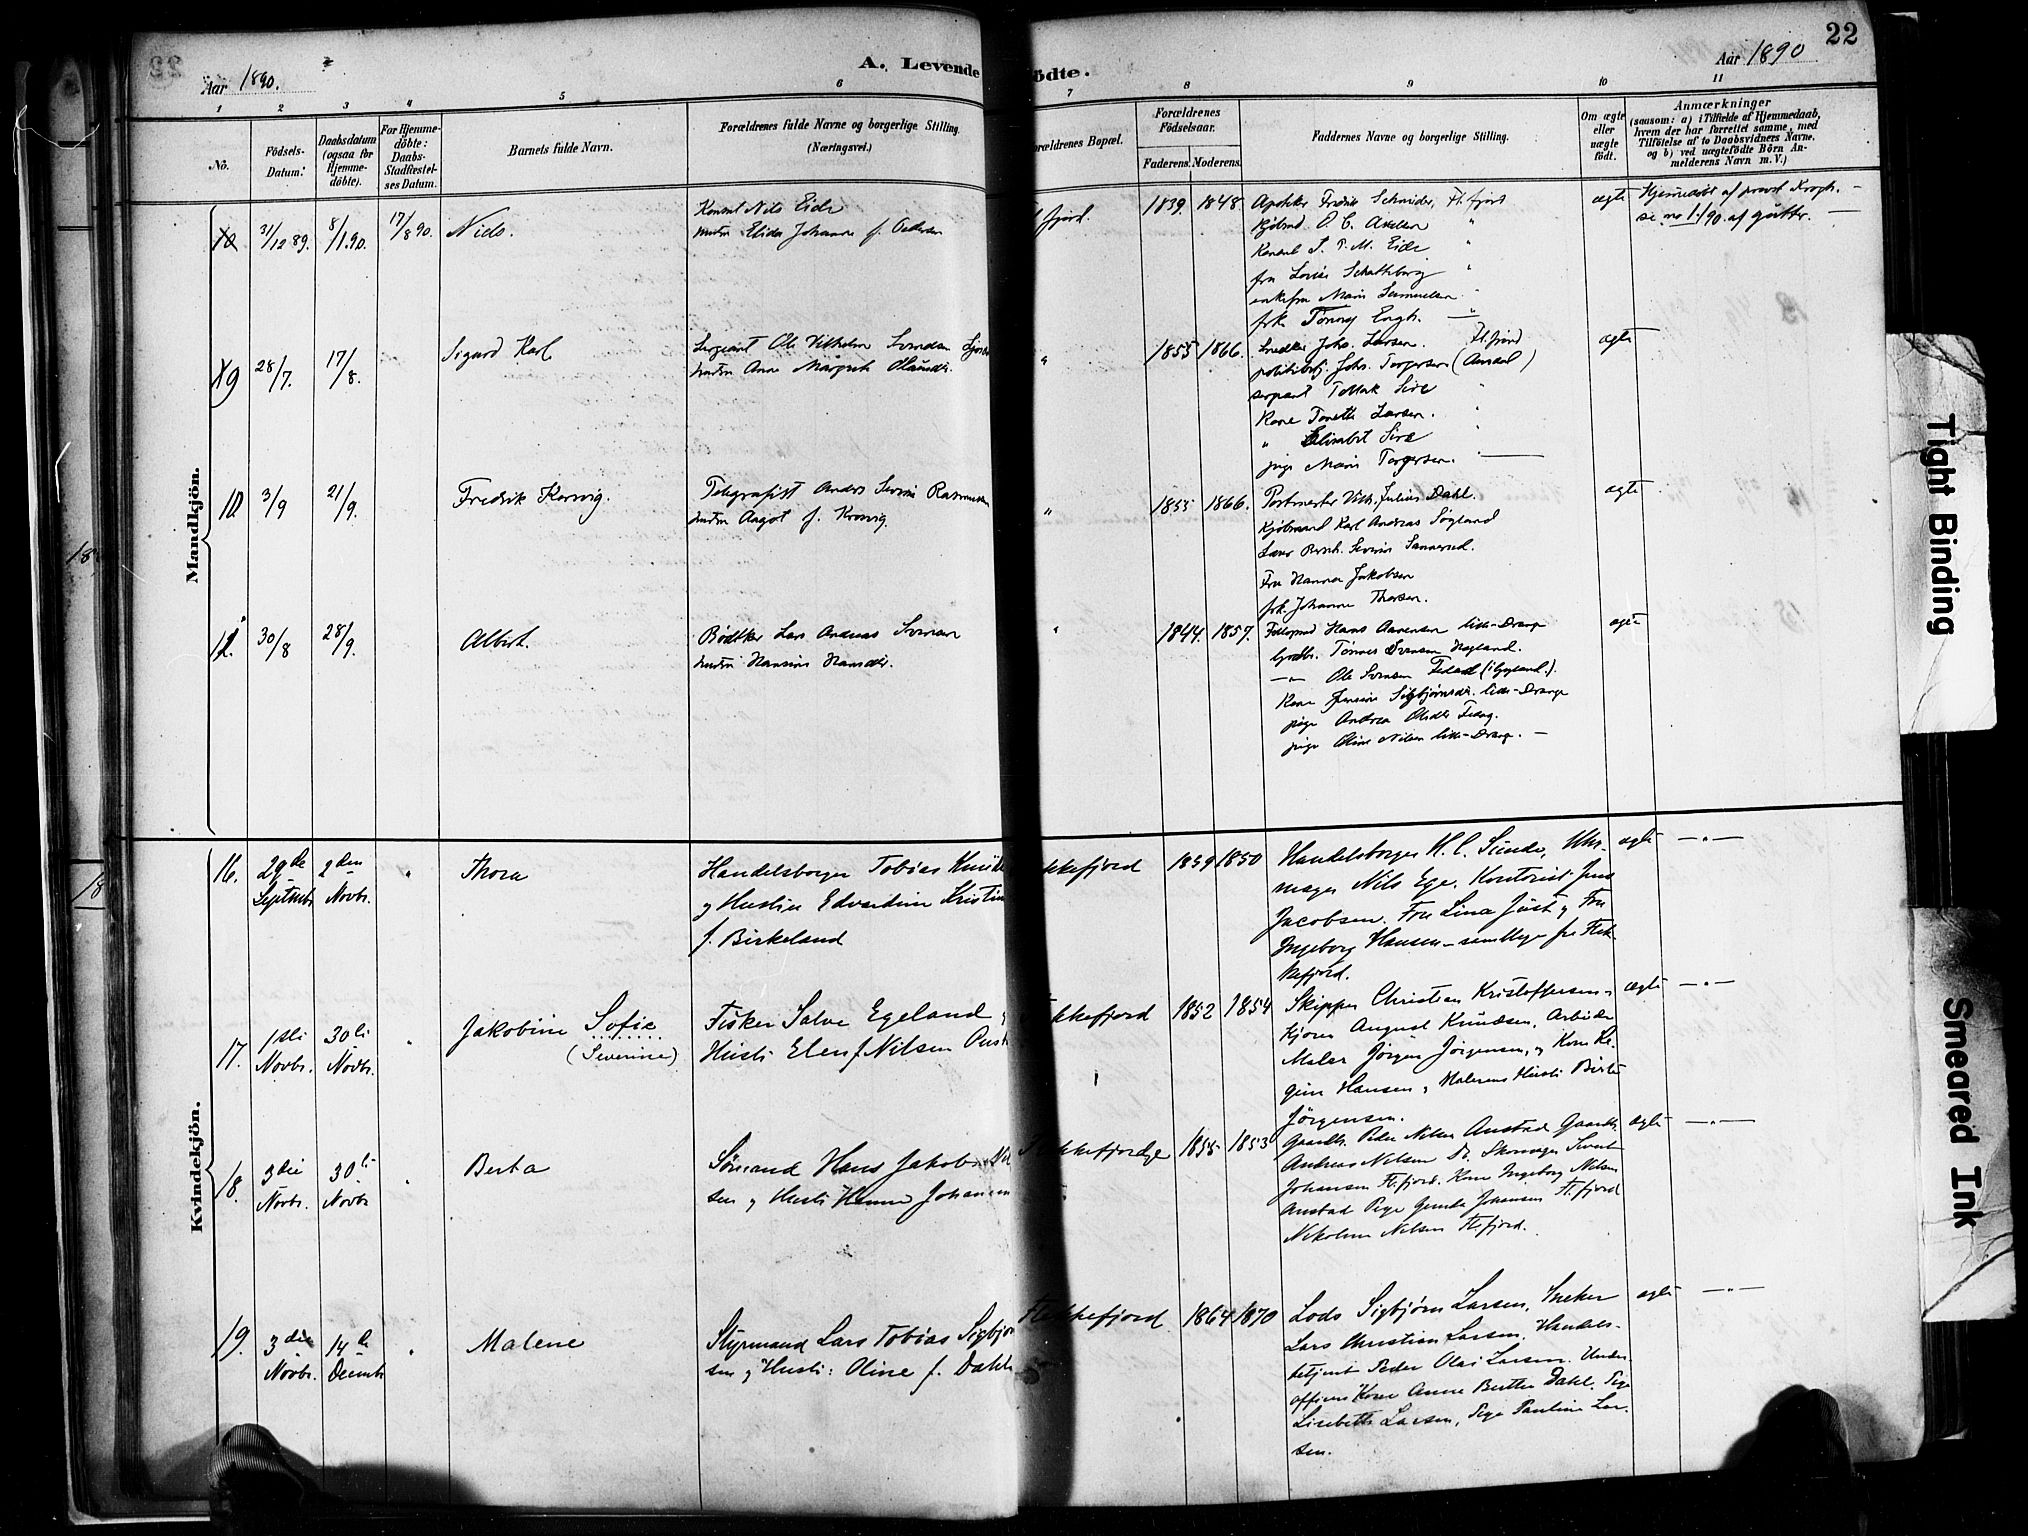 22
Aar 1890.
A. Levende
ödte.
Aar 1890
1 2 3 4 5 6 7 8 9 10 11
No.
Födsels-
Datum.
Daabsdatum
(ogsaa for
Hjemme-
döbte).
For Hjemme-
döbte:
Daabs-
Stadfæstel-
ses Datum.
Barnets fulde Navn.
Forældrenes fulde Navne og borgerlige Stilling.
(Næringsvei.)
orældrenes Bopæl.
Forældrenes
Födselsaar.
Faderens. Moderens.
Faddernes Navne og borgerlige Stilling.
Om ægte
eller
uægte
födt.
Anmærkninger
(saasom: a) i Tilfælde af Hjemmedaab,
hvem der har forrettet samme, med
Tilföielse af to Daabsvidners Navne,
og b) ved uægtefödte Börn An-
melderens Navn m. V.)
Mandkjön.
31/12 89. 8/1 90. 17/8 90. Nids.
Konsul Nils Eide
hustru Elida Johanne f.
fjord. 1839. 1848.
Apotheker Fredrik Schneider, Fl.fjord
Kjøbmd. O. C. Axelsen "
Konsul P. M. Eide "
fru Lovise "
enkefru Marie Samuelsen "
frk. Tonny Engh. —
ægte
Hjemmedøbt af provst Krogh. —
se no 1/90 af gutter. —
19 28/7. 17/8. Sigurd Karl
Sergeant Ole Vilhelm Svendsen
hustru Anne Margrete
" 1855 1866.
Snedker Johs. Larsen. Fl.fjord
politibetj. Johs. Torgersen (Arendal)
sergeant Tollak Sire "
Kone Tonette Larsen. "
" Elisabet Sire "
pige Marie Torgersen. —
ægte
10. 3/9 21/9. Fredrik Korsvig.
Telegrafist Anders Severin Rasmussen
hustru Aagot f. Krosvig.
" 1855 1866.
Postmester Vilh. Julius Dahl.
Kjøbmand Karl Andreas Søyland
Severin Sannerud.
Fru Hanna Jakobsen
frk. Johanne Thorsen.
ægte
12. 30/8 28/9. Albert.
Bødtker Lars Andreas Svensen
hustru Hansine Hansdtr.
" 1844. 1857.
Hans Aanensen lille-Drange
Tønnes Svensen Høyland.
—"— Ole Svensen (i Gyland.).
Kone Jensine Sigbjørnsdtr. lille-Drange
pige Andrea Olsdtr
pige Oline Nilsen lille-Drange. —
ægte
Kvindekjön.
16. 29de Septmbr. 2den Novbr. " Thora
Handelsborger Tobias
og Hustru Edvardine Kristin
f. Birkeland
kkefjord 1859 1850
Handelsborger H. C. Sunde, Uhr-
mager Nils Ege. Kontorist Jens
Jacobsen. Fru Lina Just og Fru
Ingeborg Hansen – samtlige fra Flek-
kefjord.
ægte —"—
17. 1ste Novbr. 30te Novbr. " Jakobine Sofie
(Severine)
Fisker Salve Egeland
Hustr. Elen f. Nilsen
kkefjord 1852 1854
Skipper Christian Kristoffersen
Kjører August Knudsen, Arbeider
Maler Jørgen Jørgensen, og Kone Re-
gine Hansen, Malerens Hustr. Birte
Jørgensen.
ægte —"—
18. 3die Novbr. 30te Novbr " Berta
Sømand Hans Jakob Niel
sen og Hustr. Hanne Johansen
kkefjord 1855 1853
Gaardb. Peder Nilsen Anstad Gaardb.
Andreas Nilsen Skomager Sivert
Johansen Fl.fjord. Kone Ingeborg Nilsen
Anstad Pige Gunda Johansen Fl.fjord
Nikoline Nilsen Fl.fjord.
ægte —"—
19. 3die Novbr. 14de Decmbr " Malene
Styrmand Lars Tobias Sigbjørn
sen og Hustr: Oline f. Dahl
Flekkefjord 1864 1870
Lods Sigbjørn Larsen, Sneker
Lars Christian Larsen, Handels-
betjent Peder Olai Larsen. Under-
officers Kone Anne Berthe Dahl. Pige
Lisebeth Larsen, Pige Pauline Lar-
sen.
ægte —"—
Tight Binding
Smeared Ink